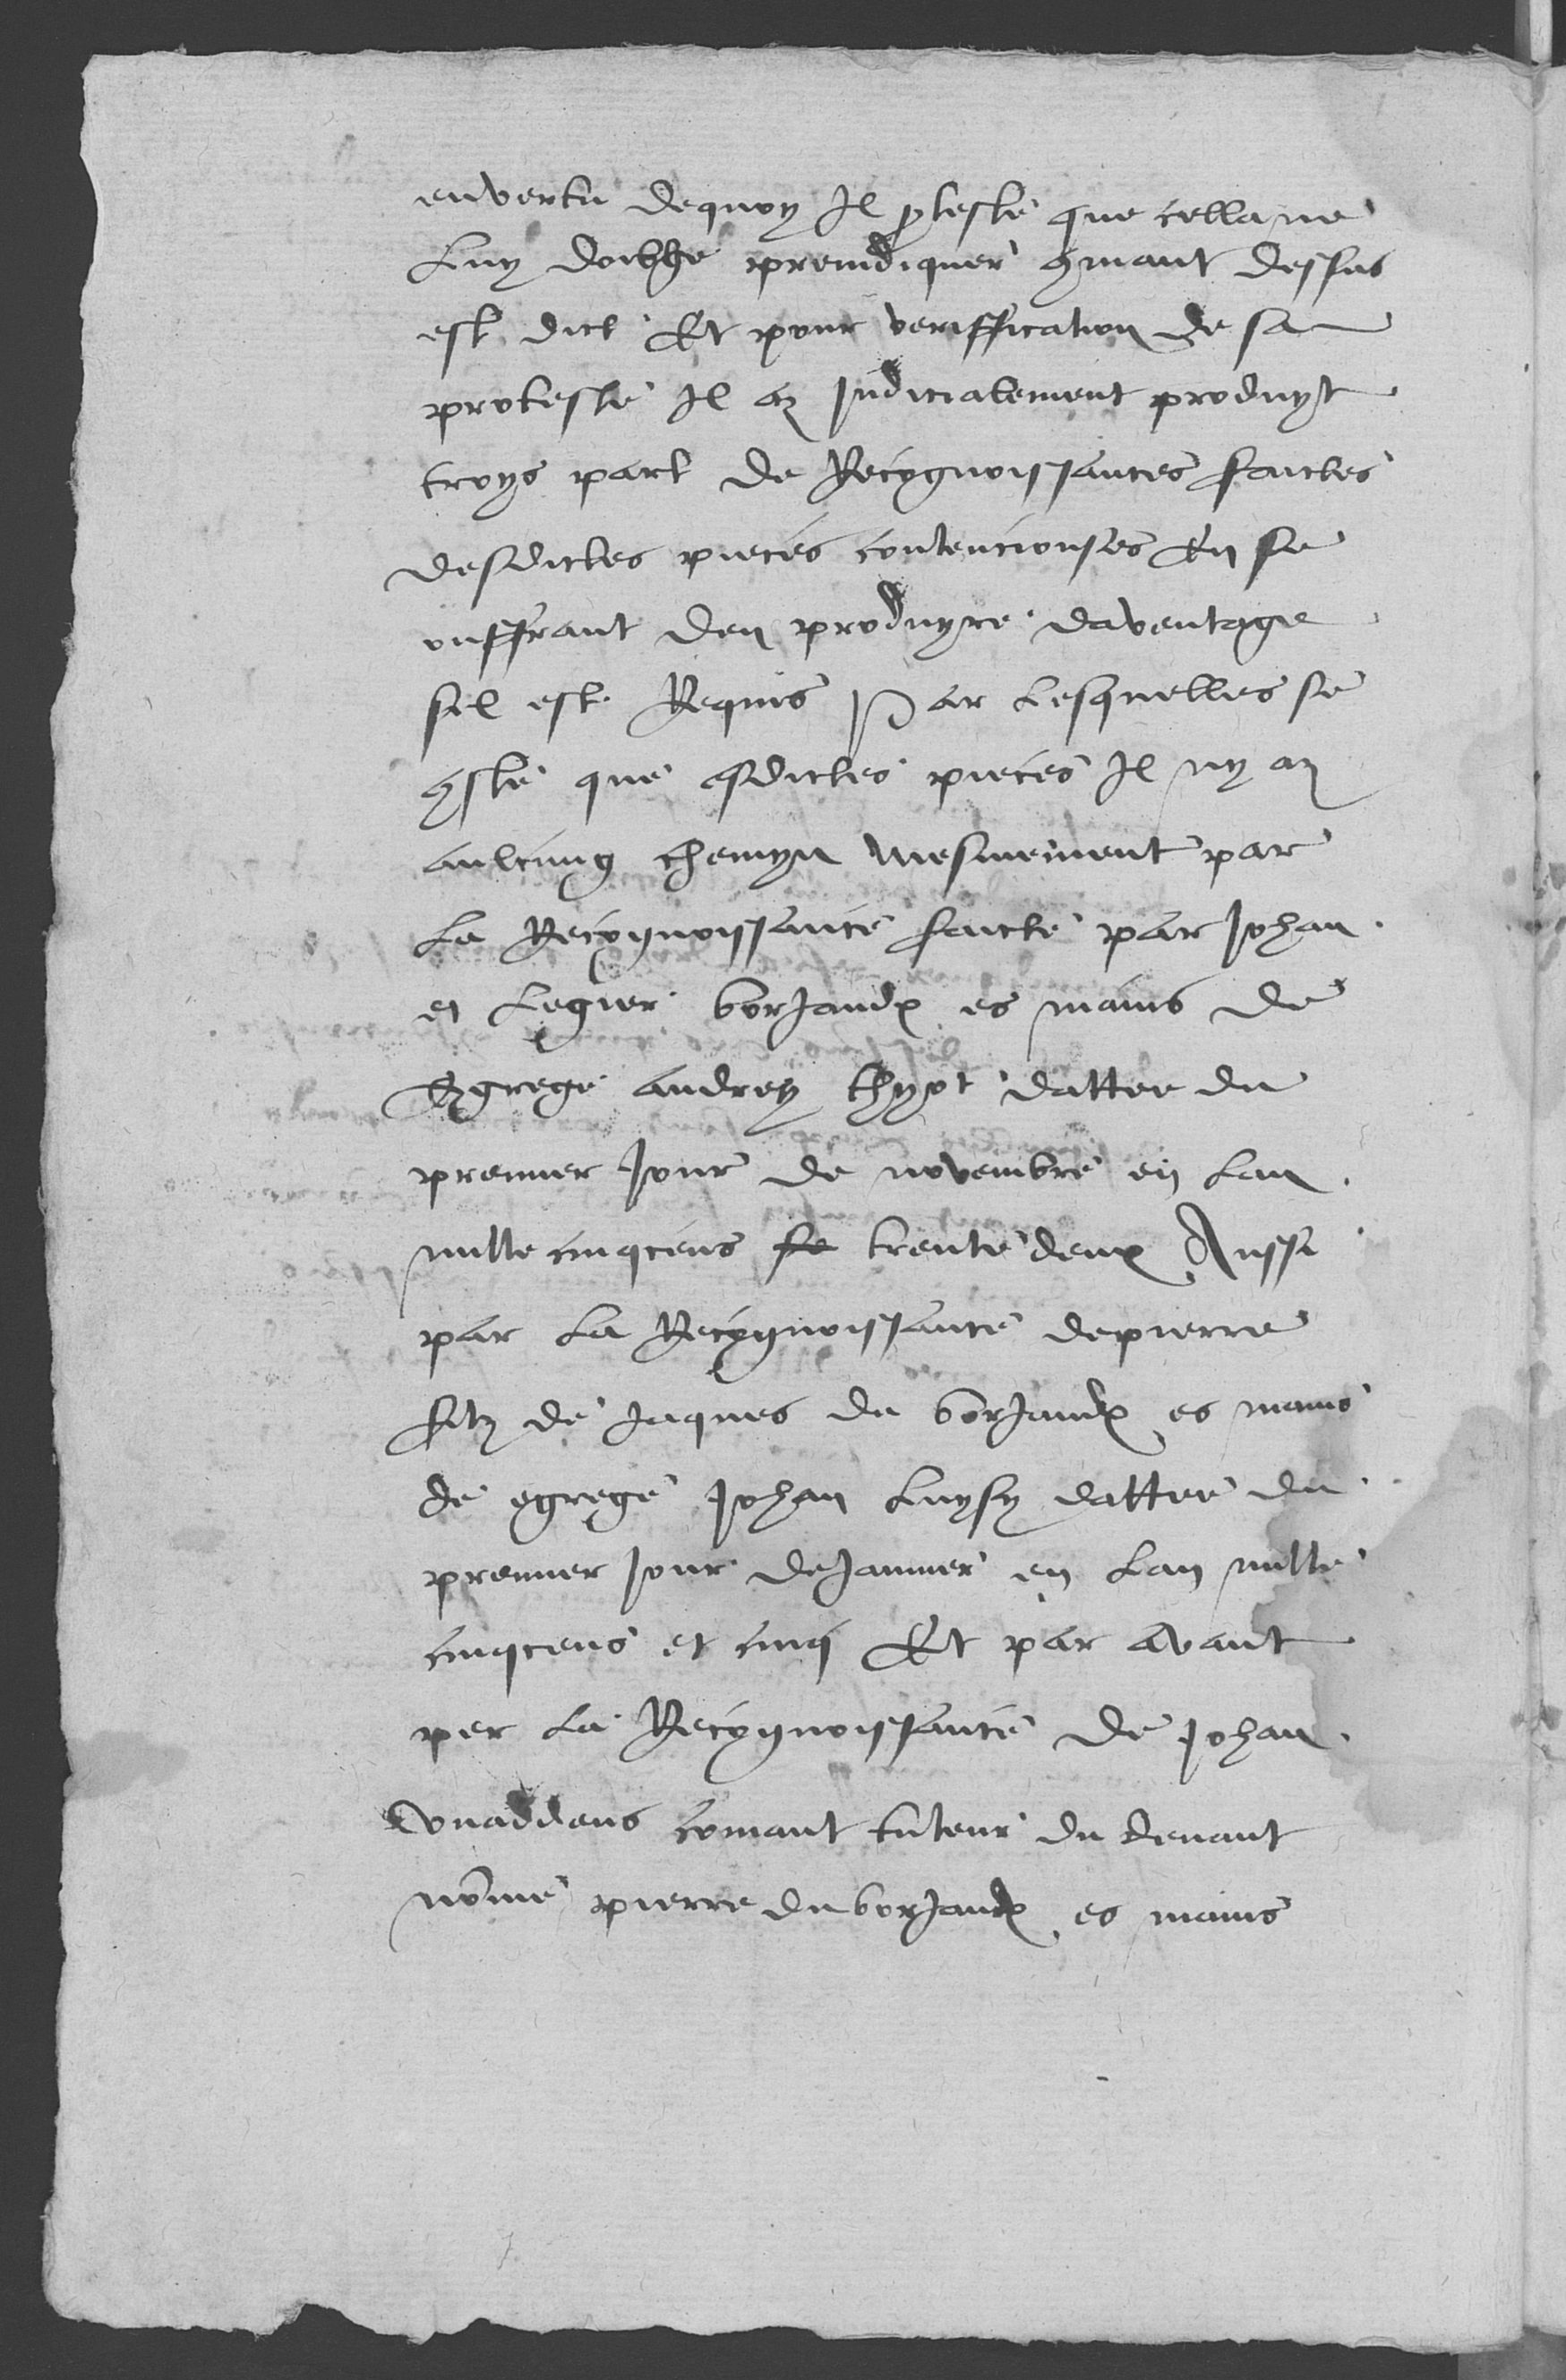 en vertu de quoy Il proteste que cella ne
Luy doibge preiudiquer comant dessus
est dict Et pour veriffication de sa
proteste Il az Iudicialement produyt
troys part de Recognoissances faictes
desdictes pieces contenciouses En se
ouffrant den produyre daventage
sil est Requis Par lesquelles se
conste que esdictes pieces Il ny az
aulcung chemyn mesmement par
La Recognoissance faicte par Johan
et Legier borJaudx es mains de
Egrege andrey thyot dattee du
premier Jour de novembre en Lan
mille cinqcens trente deux Aussi
par La Recognoissance de pierre
filz de Jaques de borJaudx es mains
de egrege Johan Luysy dattee du
premier Jour de Janvier en Lan mille
cinqcens et cinq Et par avant
per La Recognoissance de Johan
comant tuteur du devant
nomme pierre du borJaudx es mains